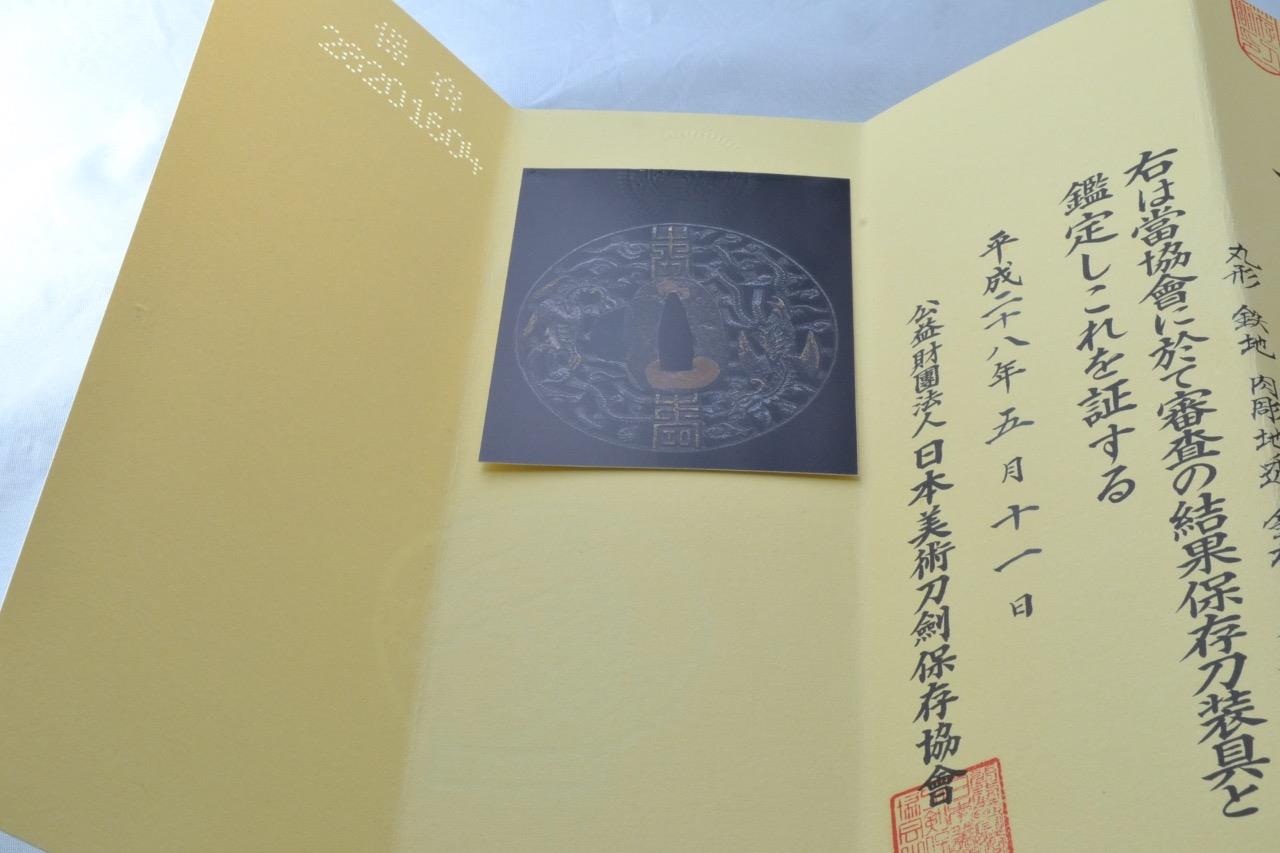 丸形 鉄地 肉彫地透
右は當協會に於て審査の結果保存刀装具と
鑑定しこれを証する
平成二十八年五月十一日
公益財團法人日本美術刀劍保存協會
28201604